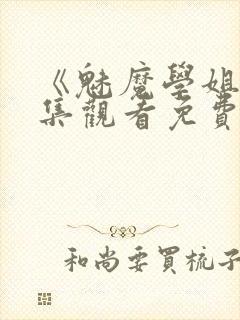 《魅魔學姐
集觀看免費
和尚要買梳子